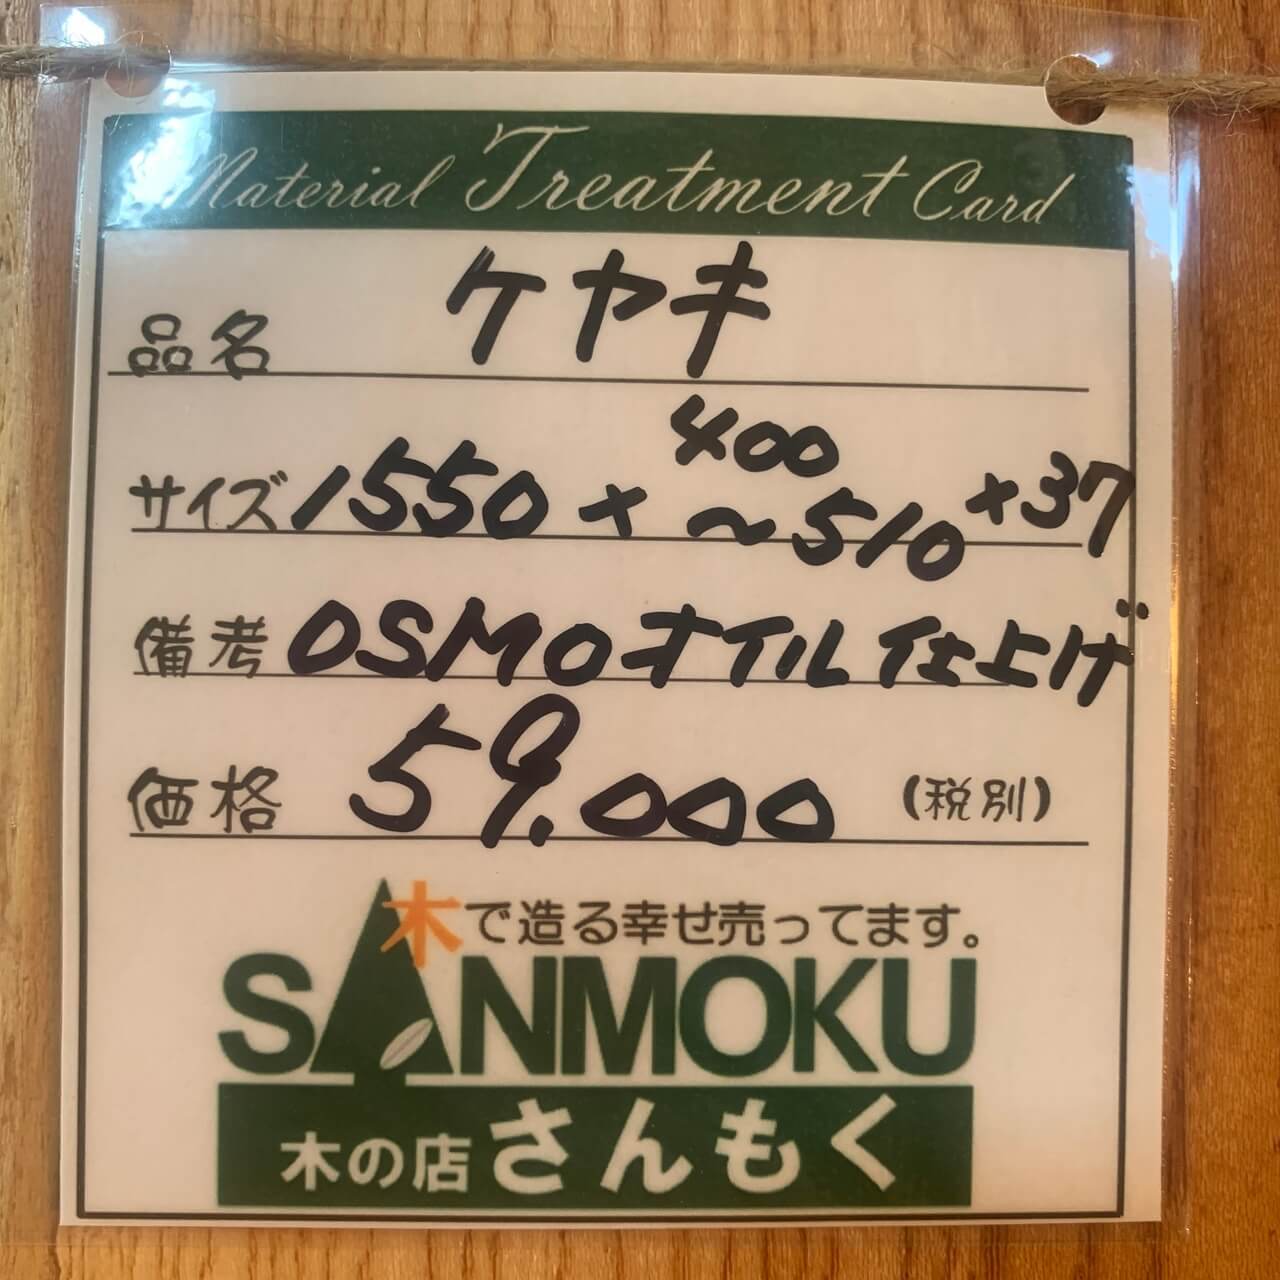 Material Treatment Card
品名 ケヤキ
サイズ 1550 × 400 ~ 510 × 37
備考 OSMO オイル仕上げ
価格 59.000 (税別)
木で造る幸せ売ってます。
SANMOKU
木の店 さんもく